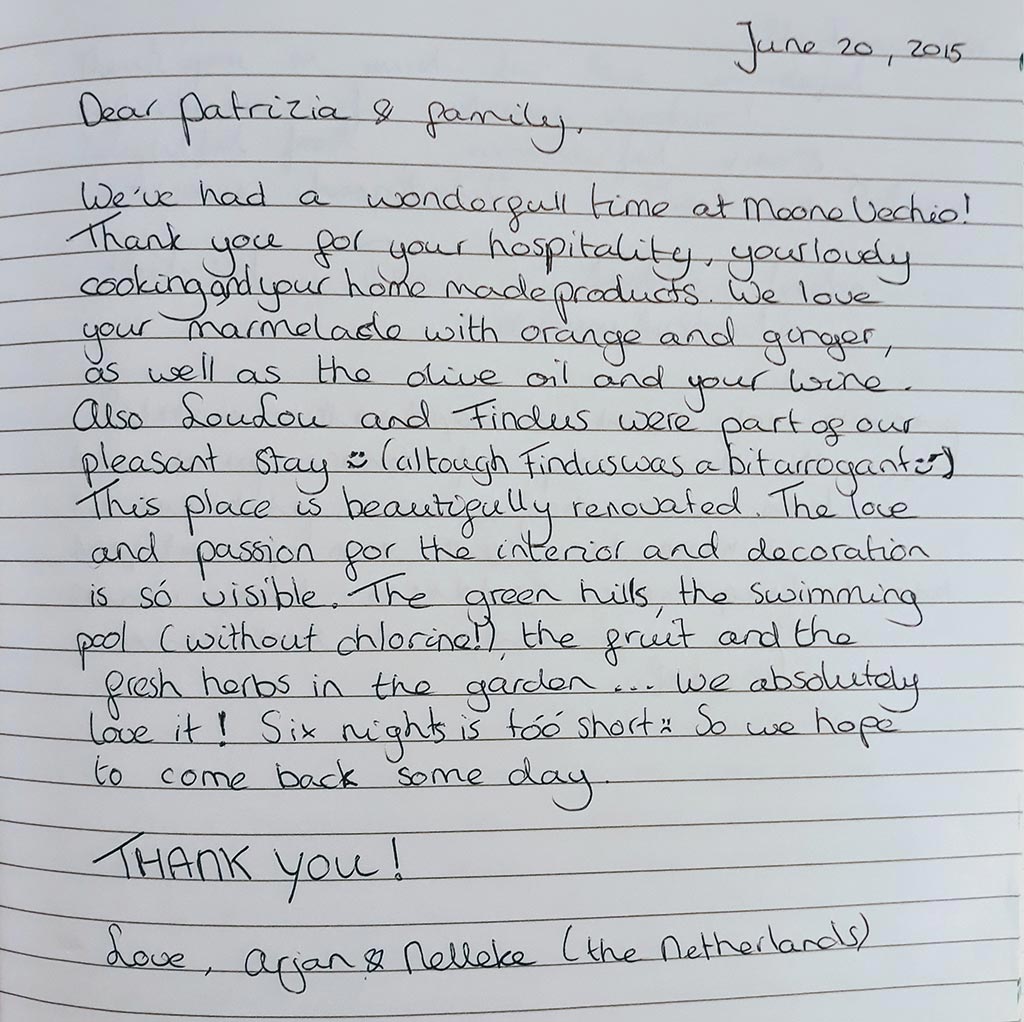 June 20, 2015
Dear Patrizia & family,
We've had a wonderfull time at Moone Vechio!
Thank you for your hospitality, your lovely
cooking and your home made products. We love
your marmelade with orange and ginger,
as well as the olive oil and your wine.
Also LouLou and Findus were part of our
pleasant stay :) (altough Findus was a bit arrogant ;-))
This place is beautifully renovated. The love
and passion for the interior and decoration
is só visible. The green hills, the swimming
pool (without chlorine!), the fruit and the
fresh herbs in the garden ... we absolutely
love it! Six nights is tóó short :( So we hope
to come back some day.
THANK YOU!
Love, Arjan & Nelleke (the Netherlands)